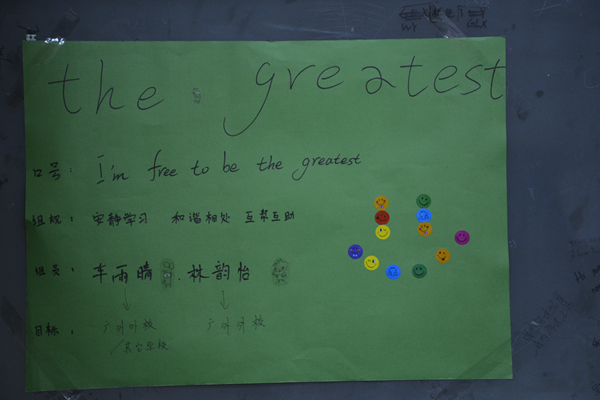 the greatest
口号： I'm free to be the greatest
组规： 安静学习 和谐相处 互帮互助
组员： 车雨晴 . 林韵怡
目标： 广外外校 广外外校